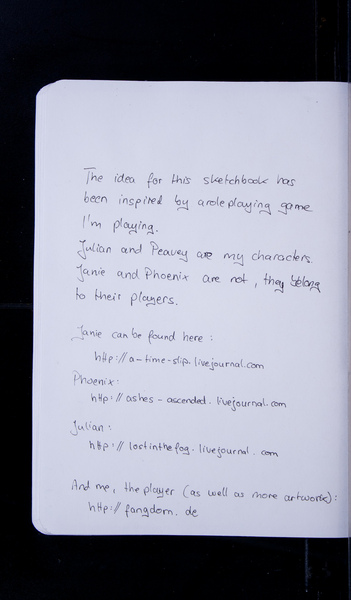 The idea for this sketchbook has
been inspired by a roleplaying game
I'm playing.
Julian and Peavey are my characters.
Janie and Phoenix are not, they belong
to their players.
Janie can be found here:
http://a-time-slip.livejournal.com
Phoenix:
http://ashes-ascended.livejournal.com
Julian:
http://lostinthefog.livejournal.com
And me, the player (as well as more artwork):
http://fangdorn.de